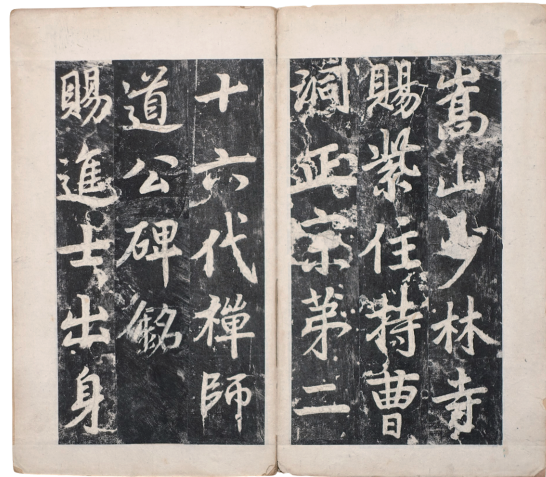 嵩山少林寺
賜紫住持曹
洞正宗第二
十六代禅師
道公碑銘
賜進士出身